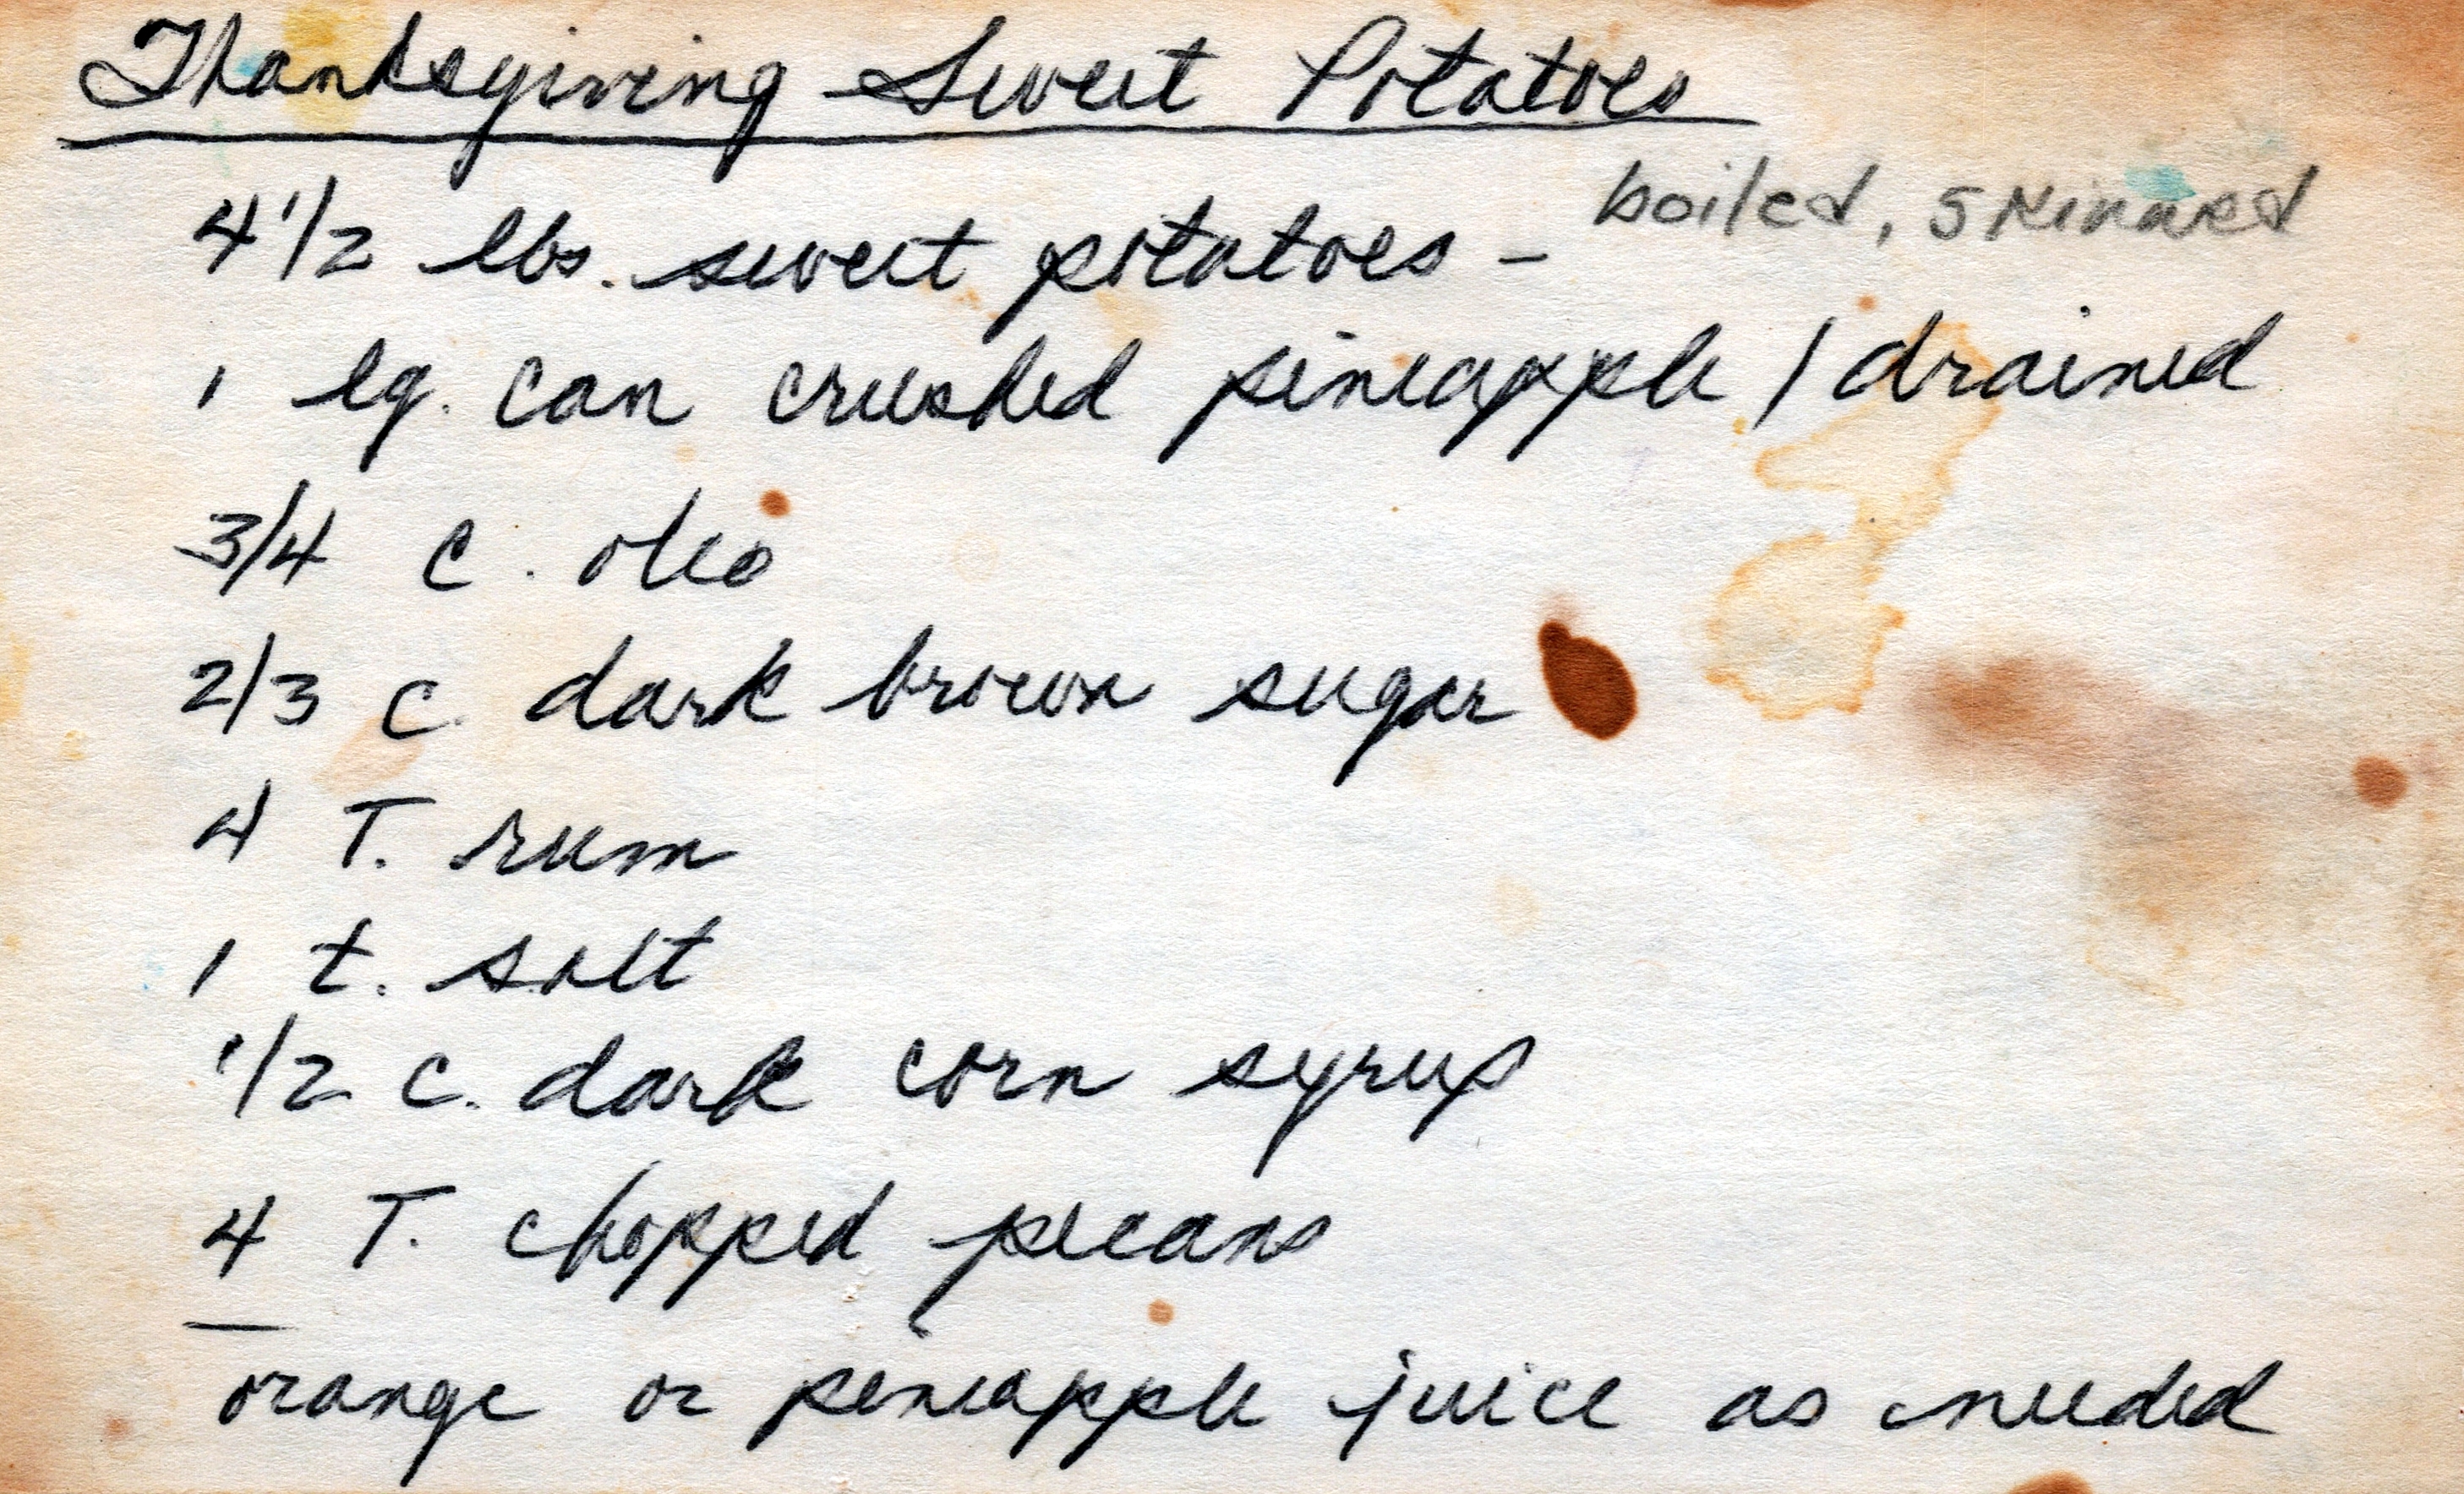 Thanksgiving Sweet Potatoes
4 1/2 lbs. sweet potatoes - boiled, skinned
1 lg. can crushed pineapple / drained
3/4 c. oleo
2/3 c. dark brown sugar
4 T. rum
1 t. salt
1/2 c. dark corn syrup
4 T. chopped pecans
orange or pineapple juice as needed